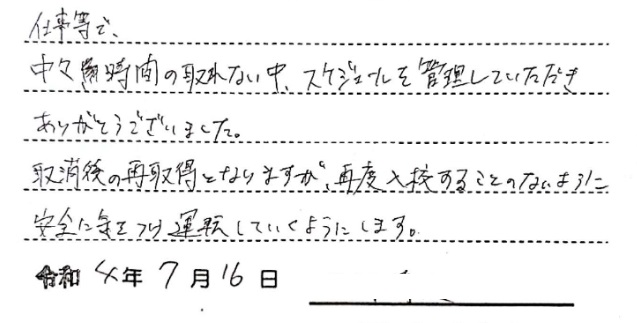 仕事等で、
中々時間の取れない中、スケジュールを管理していただき
ありがとうございました。
取消後の再取得となりますが、再度入校することのないように
安全に気をつけ運転していくようにします。
令和4年7月16日